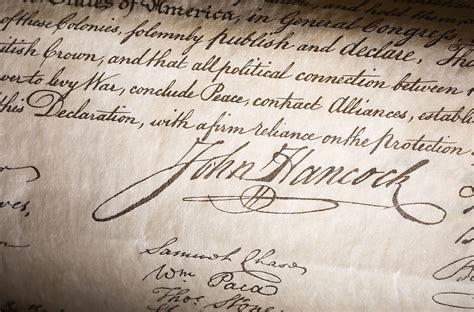 States of America, in General Congress,
of these Colonies, solemnly publish and declare, Tha
itish Crown, and that all political connection between
wer to levy War, conclude Peace, contract Alliances, establis
this Declaration, with a firm reliance on the protection
John Hancock
Samuel Chase
Wm Paca
Thos Stone